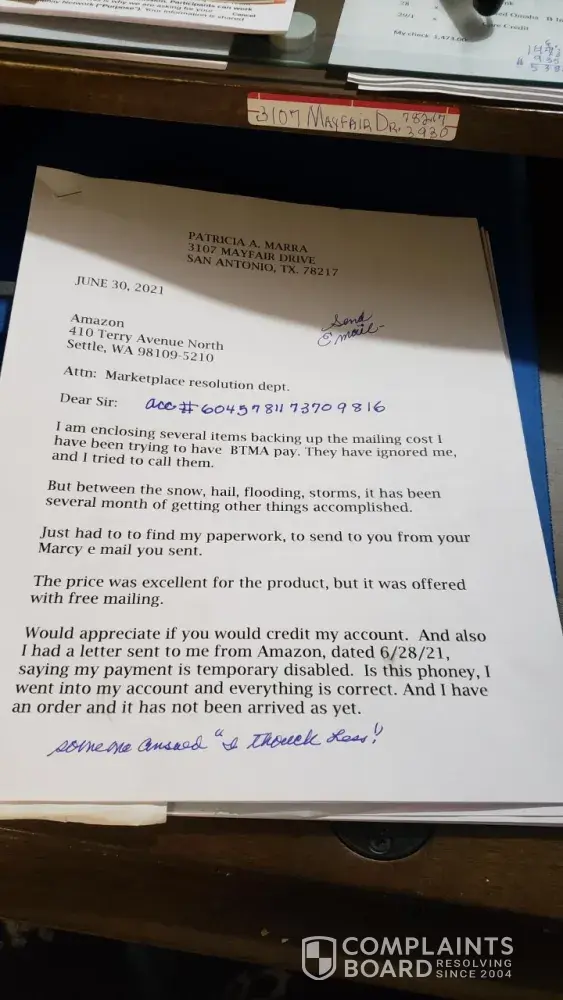 is why we are asking for your
Participants can work
Pay Network ("Purpose"). Your information is shared
Cancel
Omaha
Credit
My check 1,473.00
3107 MAYFAIR DR. 78217
3930
PATRICIA A. MARRA
3107 MAYFAIR DRIVE
SAN ANTONIO, TX. 78217
JUNE 30, 2021
Send
Email-
Amazon
410 Terry Avenue North
Settle, WA 98109-5210
Attn: Marketplace resolution dept.
Dear Sir: acc# 6045781173709816
I am enclosing several items backing up the mailing cost I
have been trying to have BTMA pay. They have ignored me,
and I tried to call them.
But between the snow, hail, flooding, storms, it has been
several month of getting other things accomplished.
Just had to to find my paperwork, to send to you from your
Marcy e mail you sent.
The price was excellent for the product, but it was offered
with free mailing.
Would appreciate if you would credit my account. And also
I had a letter sent to me from Amazon, dated 6/28/21,
saying my payment is temporary disabled. Is this phoney, I
went into my account and everything is correct. And I have
an order and it has not been arrived as yet.
someone "I less!"
COMPLAINTS
BOARD RESOLVING
SINCE 2004